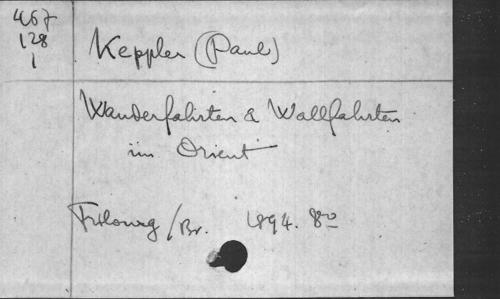 467
128
1
Keppler (Paul)
Wanderfahrten & Wallfahrten
im Orient
Friburg /Br. 1894. 8°